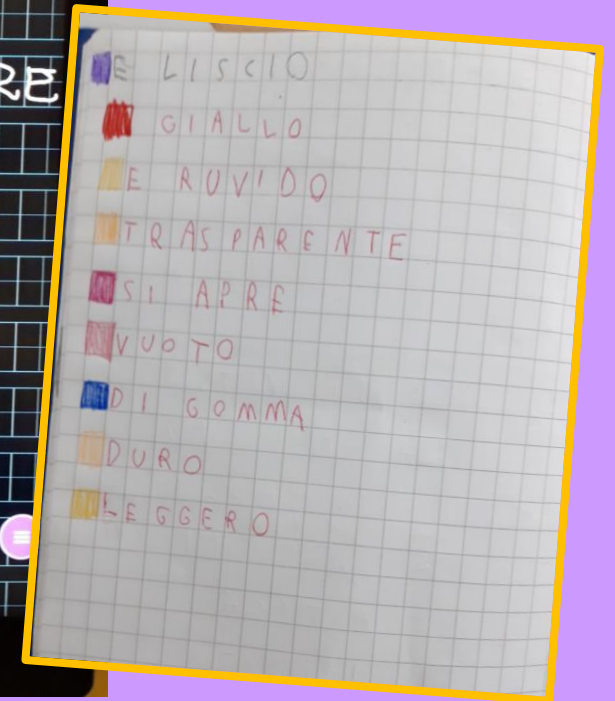 RE
E LISCIO
GIALLO
E RUVIDO
TRASPARENTE
SI APRE
VUOTO
DI GOMMA
DURO
LEGGERO